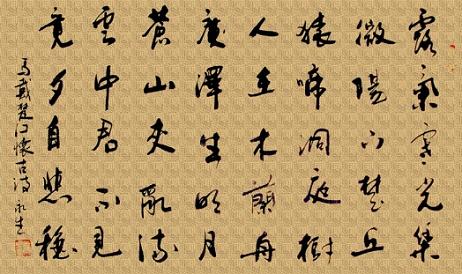 露氣寒光集
微陽下楚丘
猿啼洞庭樹
人在木蘭舟
廣澤生明月
蒼山夾亂流
雲中君不見
竟夕自悲穐
馬戴楚江懷古詩 永生